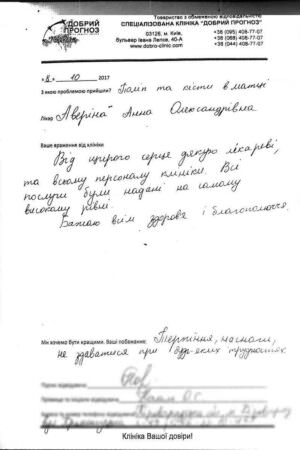 ДОБРИЙ ПРОГНОЗ
Товариство з обмеженою відповідальністю
СПЕЦІАЛІЗОВАНА КЛІНІКА "ДОБРИЙ ПРОГНОЗ"
03126, м. Київ,
бульвар Івана Лепсе, 40-А
www.dobro-clinic.com
+38 (095) 408-77-07
+38 (068) 408-77-07
+38 (044) 408-77-07
10 2017
З якою проблемою прийшли? та кісти в матці
Лікар Аверіна Анна Олександрівна
Ваше враження від клініки
Від щирого серця дякую лікареві,
та всьому персоналу клініки. Всі
послуги були надані на самому
високому рівні.
Бажаю всім здоров'я і благополуччя.
Ми хочемо бути кращими. Ваші побажання: Терпіння, наснаги,
не здаватися при будь-яких труднощах.
Клініка Вашої довіри!